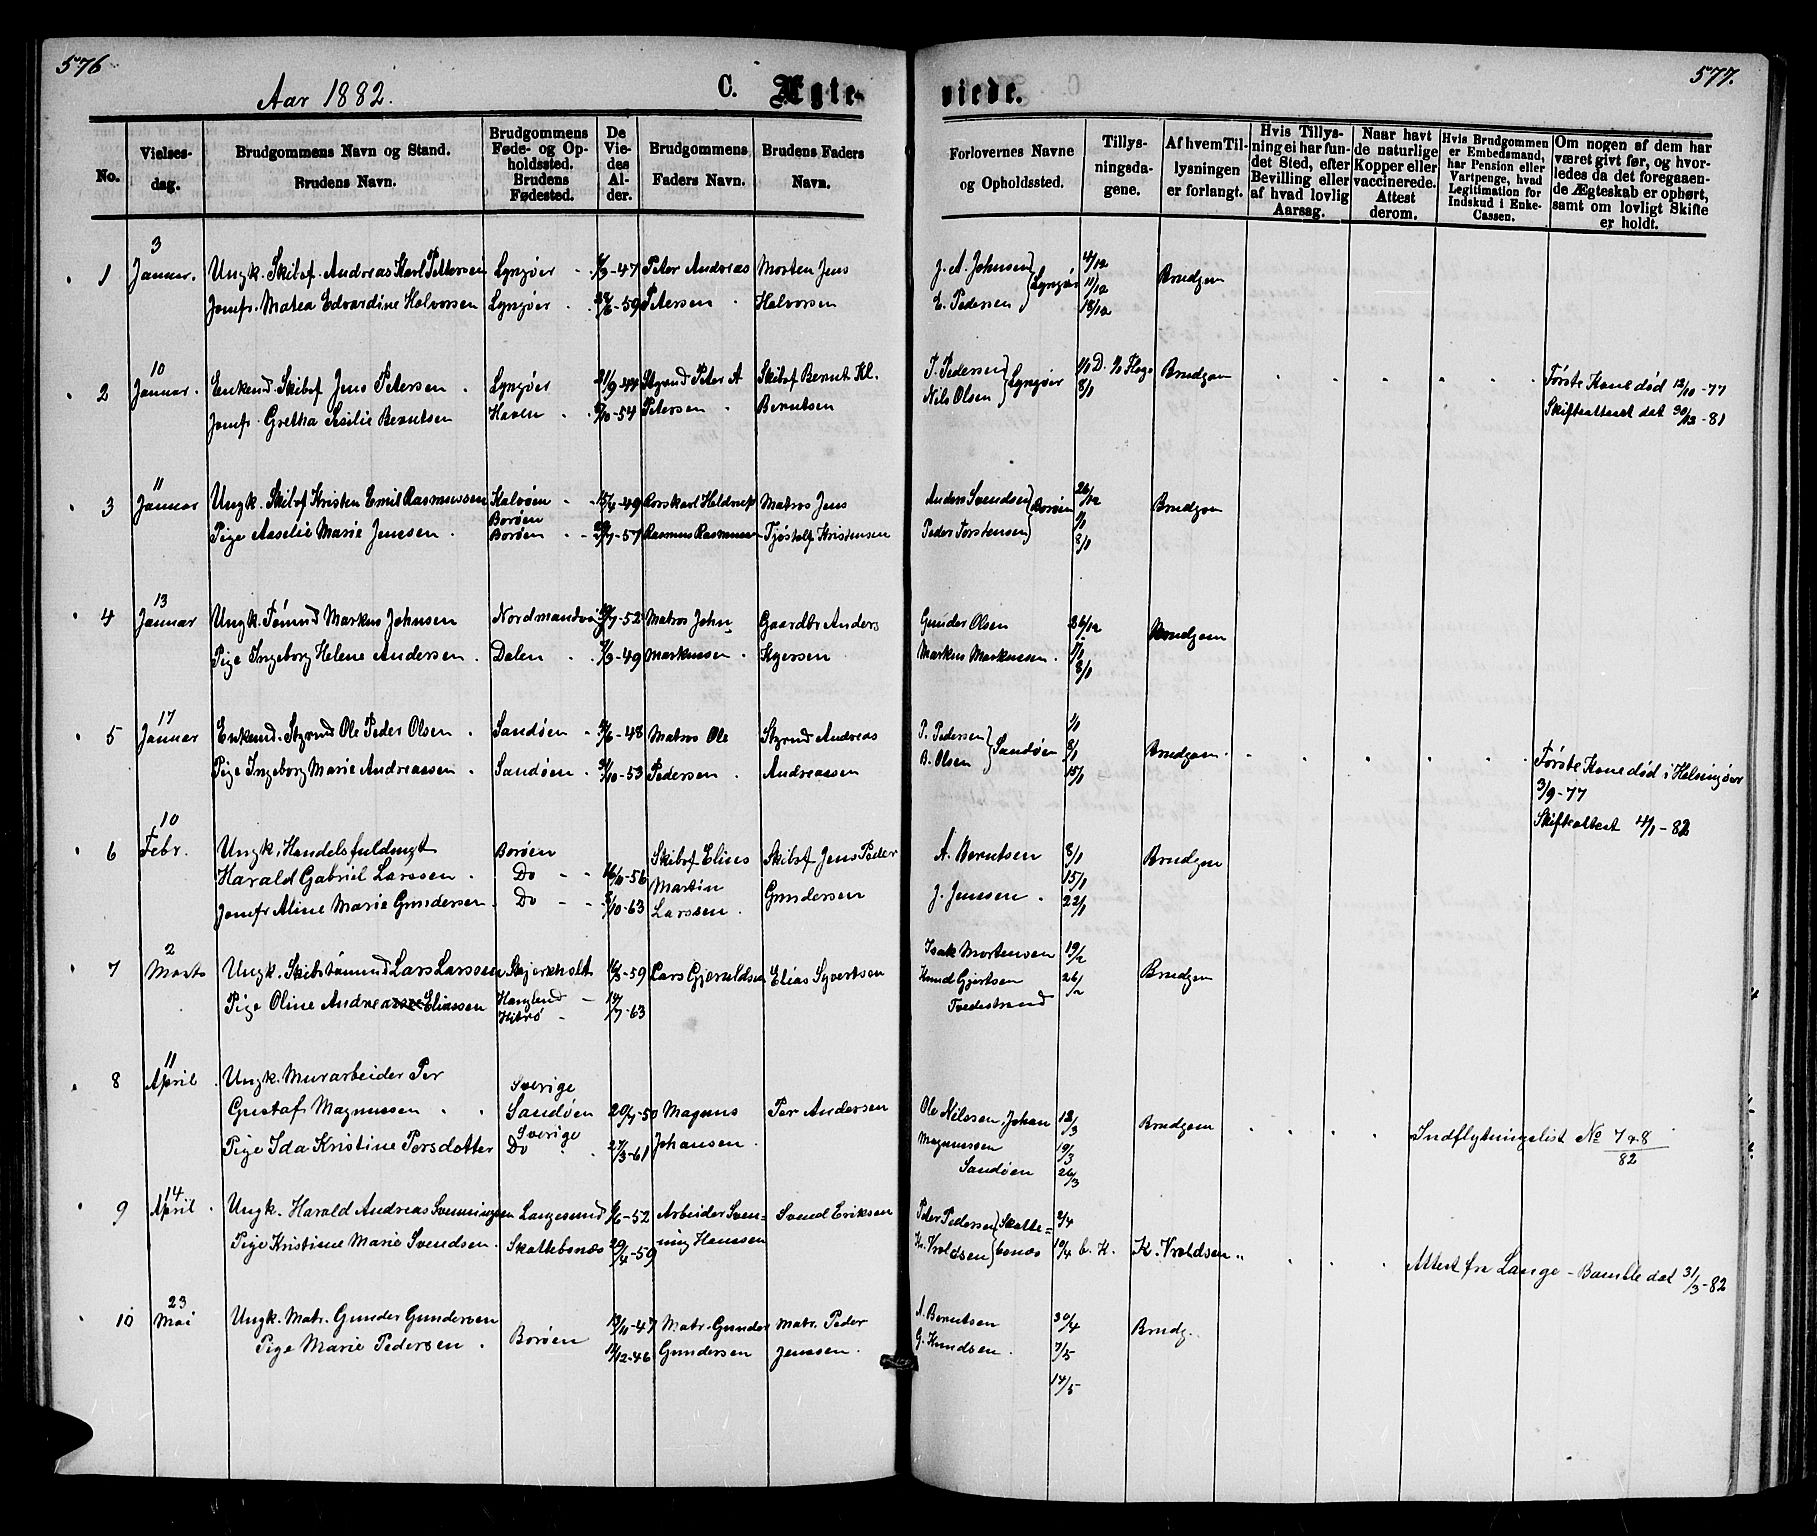 576
Aar 1882.
C. Ægte-
No.
Vielses-
dag.
Brudgommens Navn og Stand.
Brudens Navn.
Brudgommens
Føde- og Op-
holdssted.
Brudens
Fødested.
De
Vie-
des
Al-
der.
Brudgommens
Faders Navn.
Brudens Faders
Navn.
1 3 Januar. Ungk. Skibsf. Andreas Karl Pettersen Lyngøer -47 Peter Andreas Morten Jens
Jomfr. Matea Edvardine Halvorsen Lyngøer -59 Petersen Halvorsen
2 10 Januar. Enkemd. Skibsf Jens Petersen Lyngøer 21/9-44 Styrmd Peter A Skibsf Bernt Kl.
Jomfr. Gretha Berntsen Haven -54 Petersen Berntsen
3 11 Januar Ungk. Skibsf Kristen Emil Rasmussen Kalvøen 15/4-49 Matros Jens
Borøen
Pige Aaselie Marie Jensen Borøen -57 Rasmus Rasmussen Tjøstolf Kristensen
4 13 Januar Ungk. Tømmd Markus Johnsen -52 Matros John Gaardbr Anders
Pige Ingeborg Helene Andersen Dalen 7/9-49 Markussen
5 17 Januar Enkemd. Styrmd Ole Peder Olsen Sandøen -48 Matros Ole Styrmd Andreas
Pige Ingeborg Marie Andreassen Sandøen -53 Pedersen Andreassen
6 10 Febr. Ungk. Handelsfuldmgt Borøen Skibsf Elius Skibsf Jens Peder
Harald Gabriel Larssen Do -56 Martin
Jomfr Aline Marie Gundersen Do -63 Larssen Gundersen
7 2 Marts Ungk. Skibstømmd Lars Larssen Skjerkholt -59 Lars Gjeruldsen Elias Syvertsen
Pige Oline Andrea Eliassen
Hitrø -63
8 11 April Ungk. Murarbeider Per Sverige
Gustaf Magnussen Sandøen 20/7-50 Magnus Per Andersen
Sverige
Pige Ida Kristine Persdotter Do 27/3-61 Johansen
9 14 April Ungk. Harald Andreas Svenningsen Langesund -52 Arbeider Sven- Svend Eriksen
Pige Kristine Marie Svendsen Skottebonæs 29/4-59 ning Hanssen
10 23 Mai Ungk. Matr. Gunder Gundersen 13/11-47 Matr. Gunder Matr. Peder
Pige Marie Pedersen Borøen -46 Gundersen Jenssen
577.
viede.
Forlovernes Navne
og Opholdssted.
Tillys-
ningsda-
gene.
Af hvem Til-
lysningen
er forlangt.
Hvis Tillys-
ning ei har fun-
det Sted, efter
Bevilling eller
af hvad lovlig
Aarsag.
Naar havt
de naturlige
Kopper eller
vaccinerede.
Attest
derom.
Hvis Brudgommen
er Embedsmand,
har Pension eller
Vartpenge, hvad
Legitimation for
Indskud i Enke-
Cassen.
Om nogen af dem har
været givt før, og hvor-
ledes da det foregaaen-
de Ægteskab er ophørt,
samt om lovligt Skifte
er holdt.
J. A. Johnsen Lyngøer 4/12 Brudgom
E. Pedersen 11/12
18/12
T. Pedersen Lyngøer 1/1 Brudgom Første Kone død 12/10-77
Nils Olsen 8/1 Skifteattest dat 30/12-81
Anders Svendsen Borøen 26/12 Brudgom
1/1
Peder Torstensen 8/1
Gunder Olsen 26/12 Brudgom
Markus Markussen 1/1
8/1
P. Pedersen Sandøen 1/1 Brudgom
B. Olsen 8/1 Første Kone død i Helsingør
15/1 3/9-77
Skifteattest 4/1-82
A. Berntsen 8/1 Brudgom
15/1
J. Jensen 22/1
Isak Mortensen 19/2 Brudgom
Knud Gjertsen 26/2
Tvedestrand
Ole Nilssen, Johan 12/3 Brudgom Indflytningslist No 7&8/82
Magnussen 19/3
Sandøen 26/3
Peter Pedersen Skotte- 2/4
K. Vroldsen bonæs 10/4 K. Vroldsen Attest fra Lange-Bamble dat 31/3-82
A. Berntsen 30/4 Brudg.
G. Knudsen 7/5
14/5